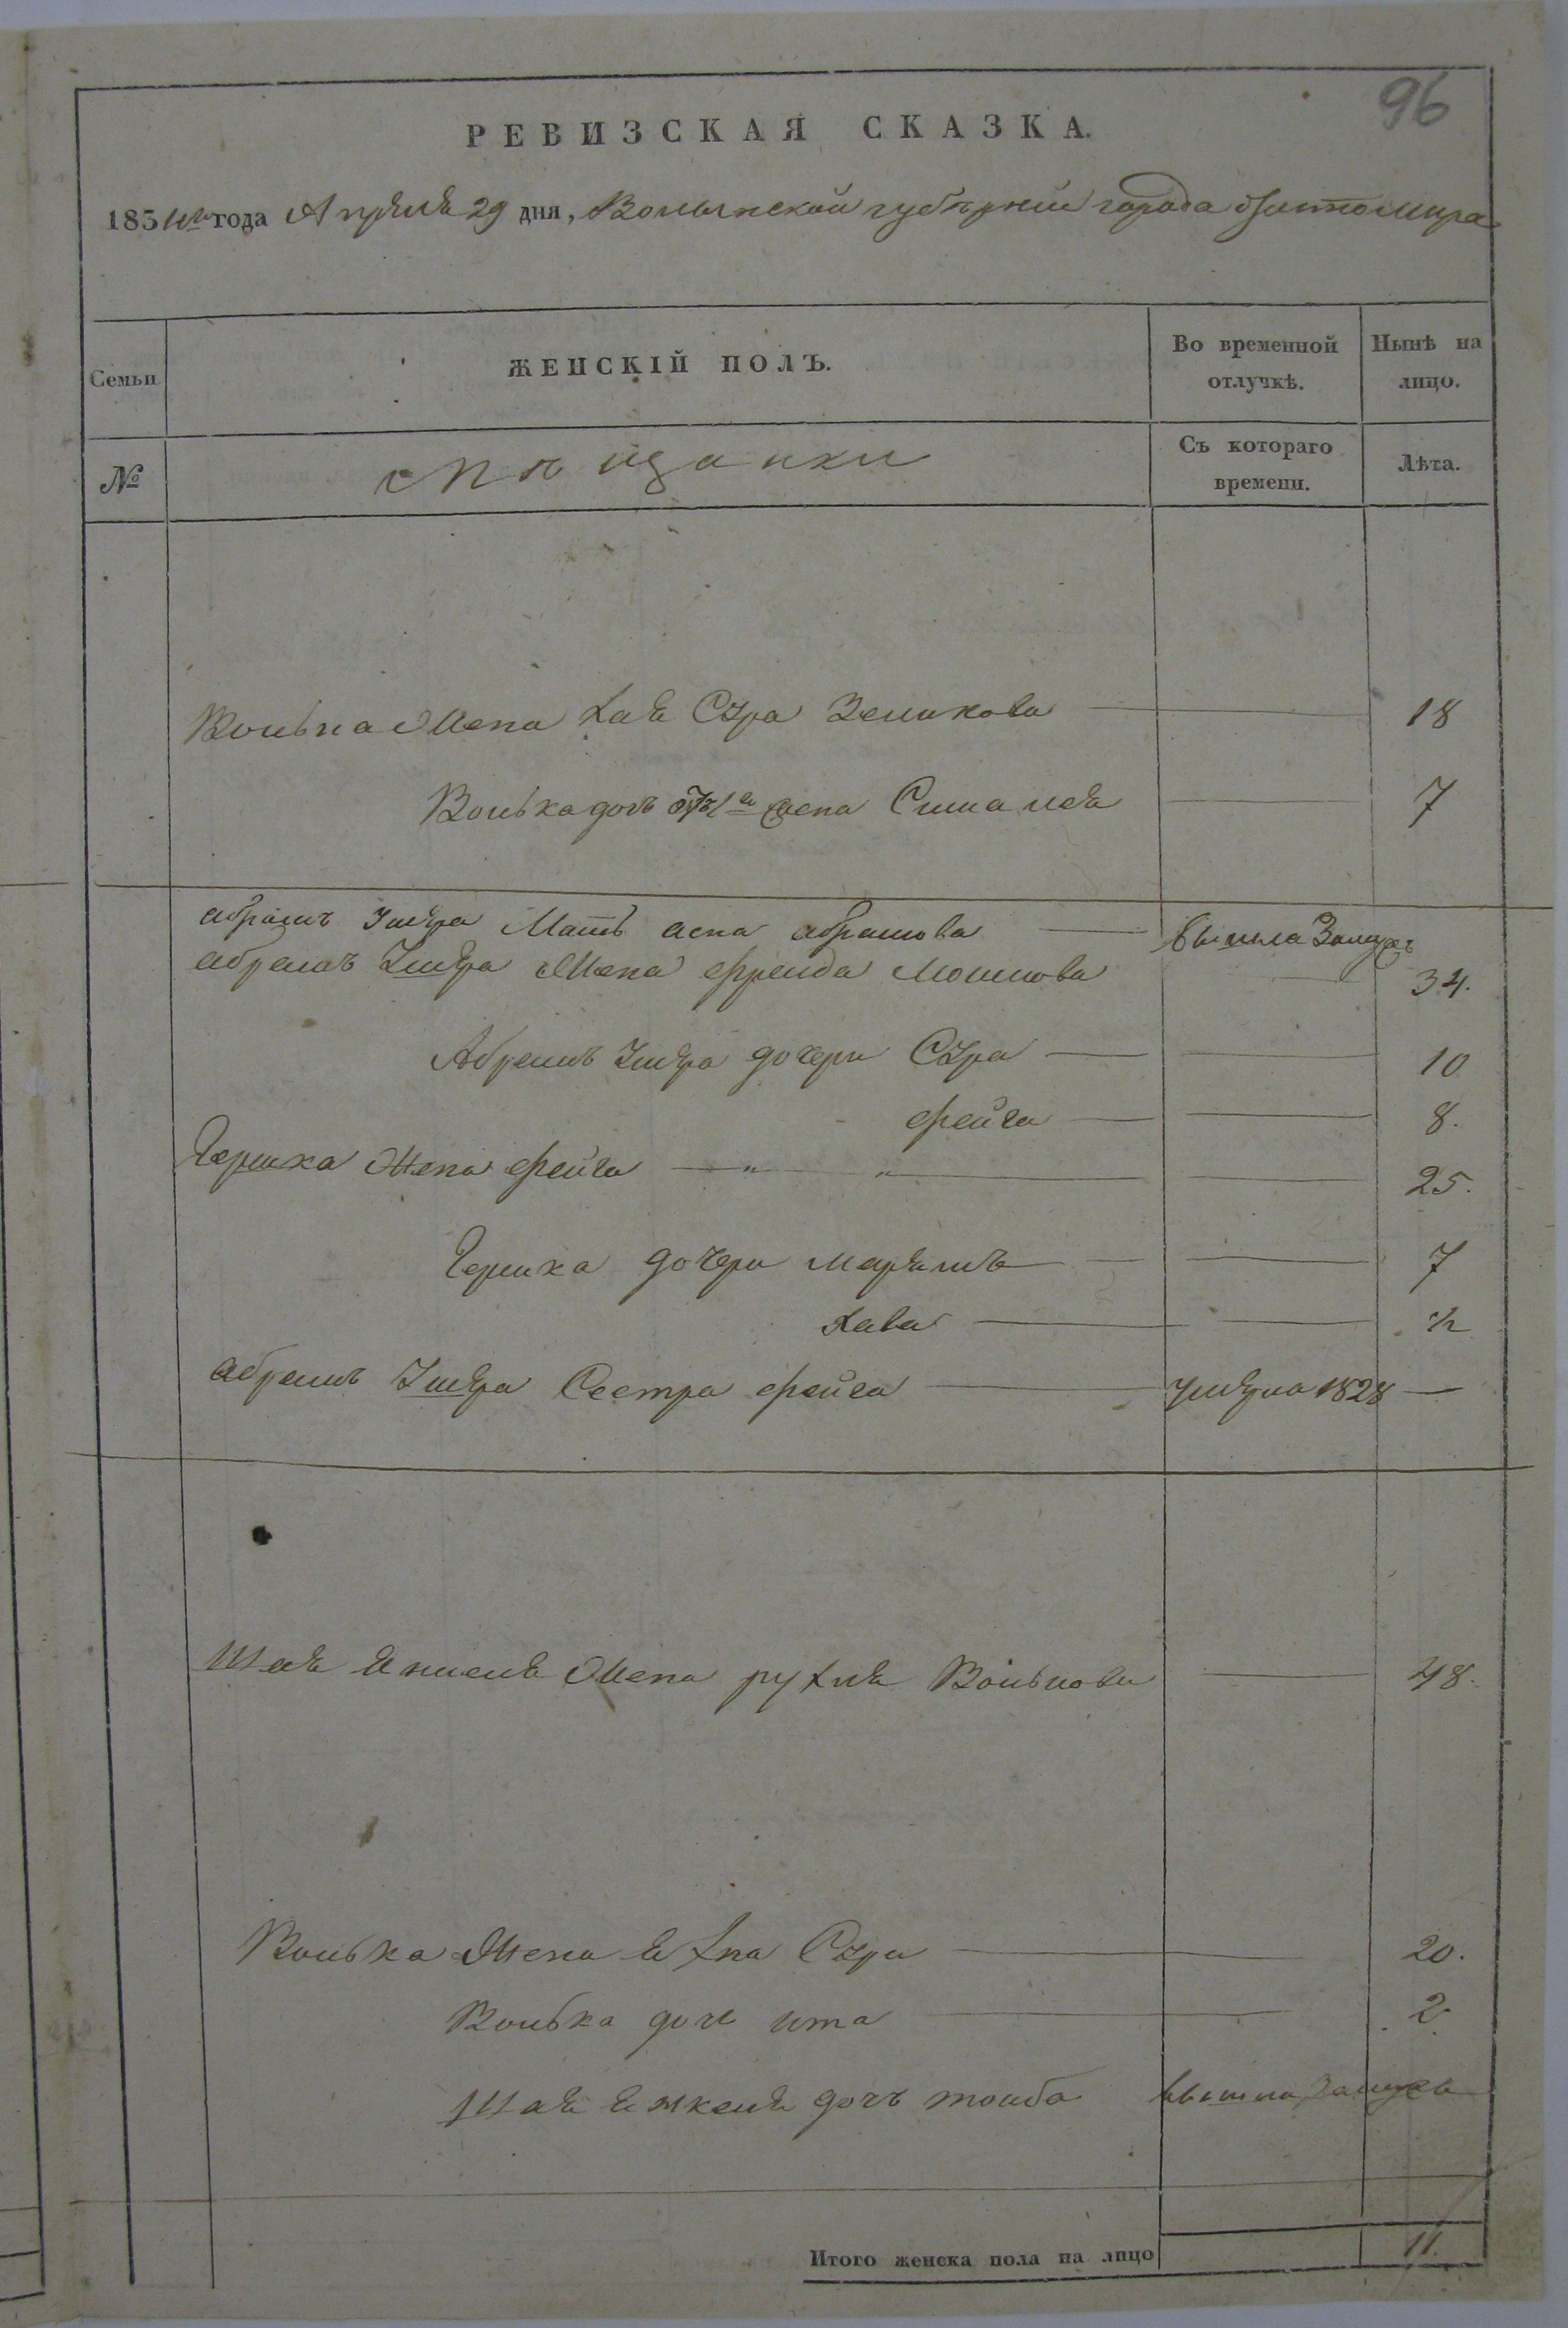 96
РЕВИЗСКАЯ СКАЗКА.
1834го года Апреля 29 дня, Волынской губерний города Житомира
Семьи
ЖЕНСКІЙ ПОЛЪ.
Во временной отлучкѣ.
Нынѣ на лицо.
№
мещанки
Съ котораго времени.
Лѣта.
Волька Жена Хая Сура Зеликова — 18
Волька дочь от 1й жена — 7
абрамъ Змера Мать асна абрамова — вышла Замужъ
абрамъ Змера Жена фрейда Мошкова 34.
Абрамъ Змера дочери Сура — 10
фейга — 8.
Гершка Жена фейга — " " — 25.
Гершка дочери марямъ — 7
хава — ½
абрамъ Змера Сестра фейга — умерла 1828 —
Шая Жена рухля Волькова — 48.
Волька Жена Сура — 20.
Волька дочь ита — 2.
Шая дочь тойба вышла Замужъ
Итого женска пола на лицо 11.